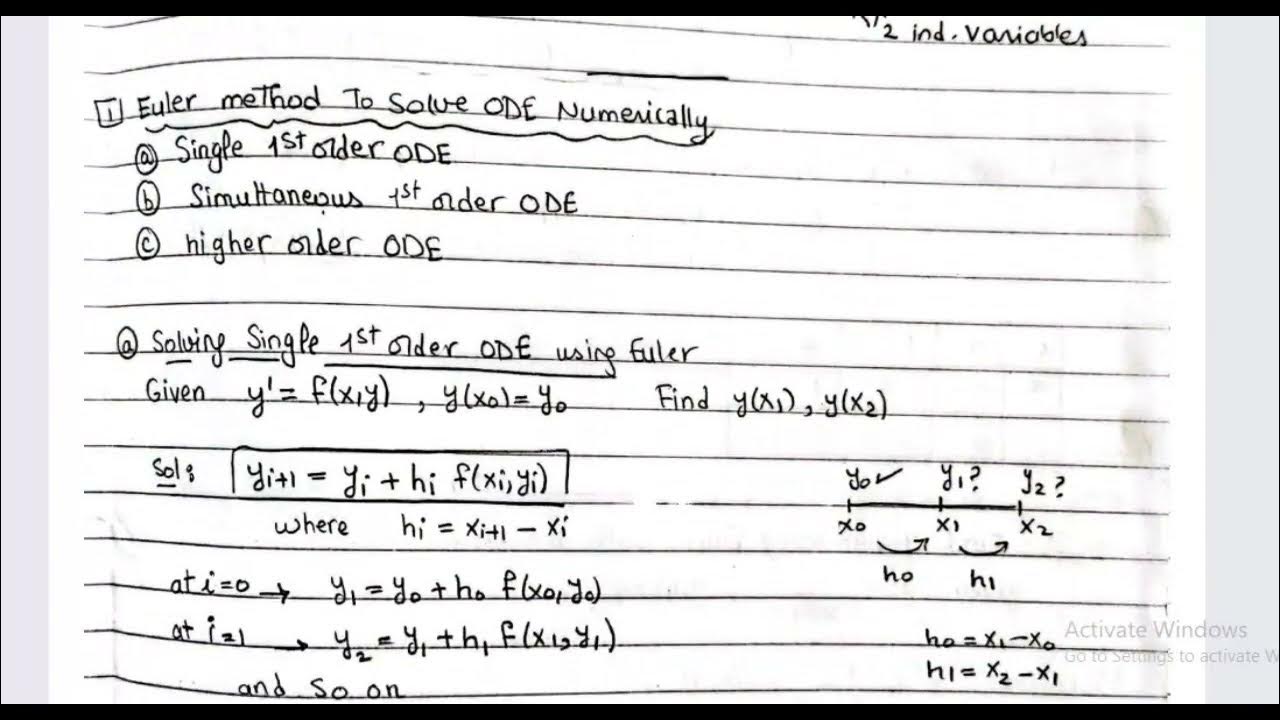 2 ind. variables
1 Euler method To Solve ODE Numerically
ⓐ Single 1st order ODE
ⓑ Simultaneous 1st order ODE
ⓒ higher order ODE
ⓐ Solving Single 1st order ODE using Euler
Given y' = f(x,y) , y(x0) = y0 Find y(x1), y(x2)
Sol: yi+1 = yi + hi f(xi,yi)
y0 ✓ y1? y2?
where hi = xi+1 − xi
x0 x1 x2
h0 h1
at i=0 → y1 = y0 + h0 f(x0,y0)
at i=1 → y2 = y1 + h1 f(x1,y1)
h0 = x1 − x0
h1 = x2 − x1
and so on
Activate Windows
Go to Settings to activate W